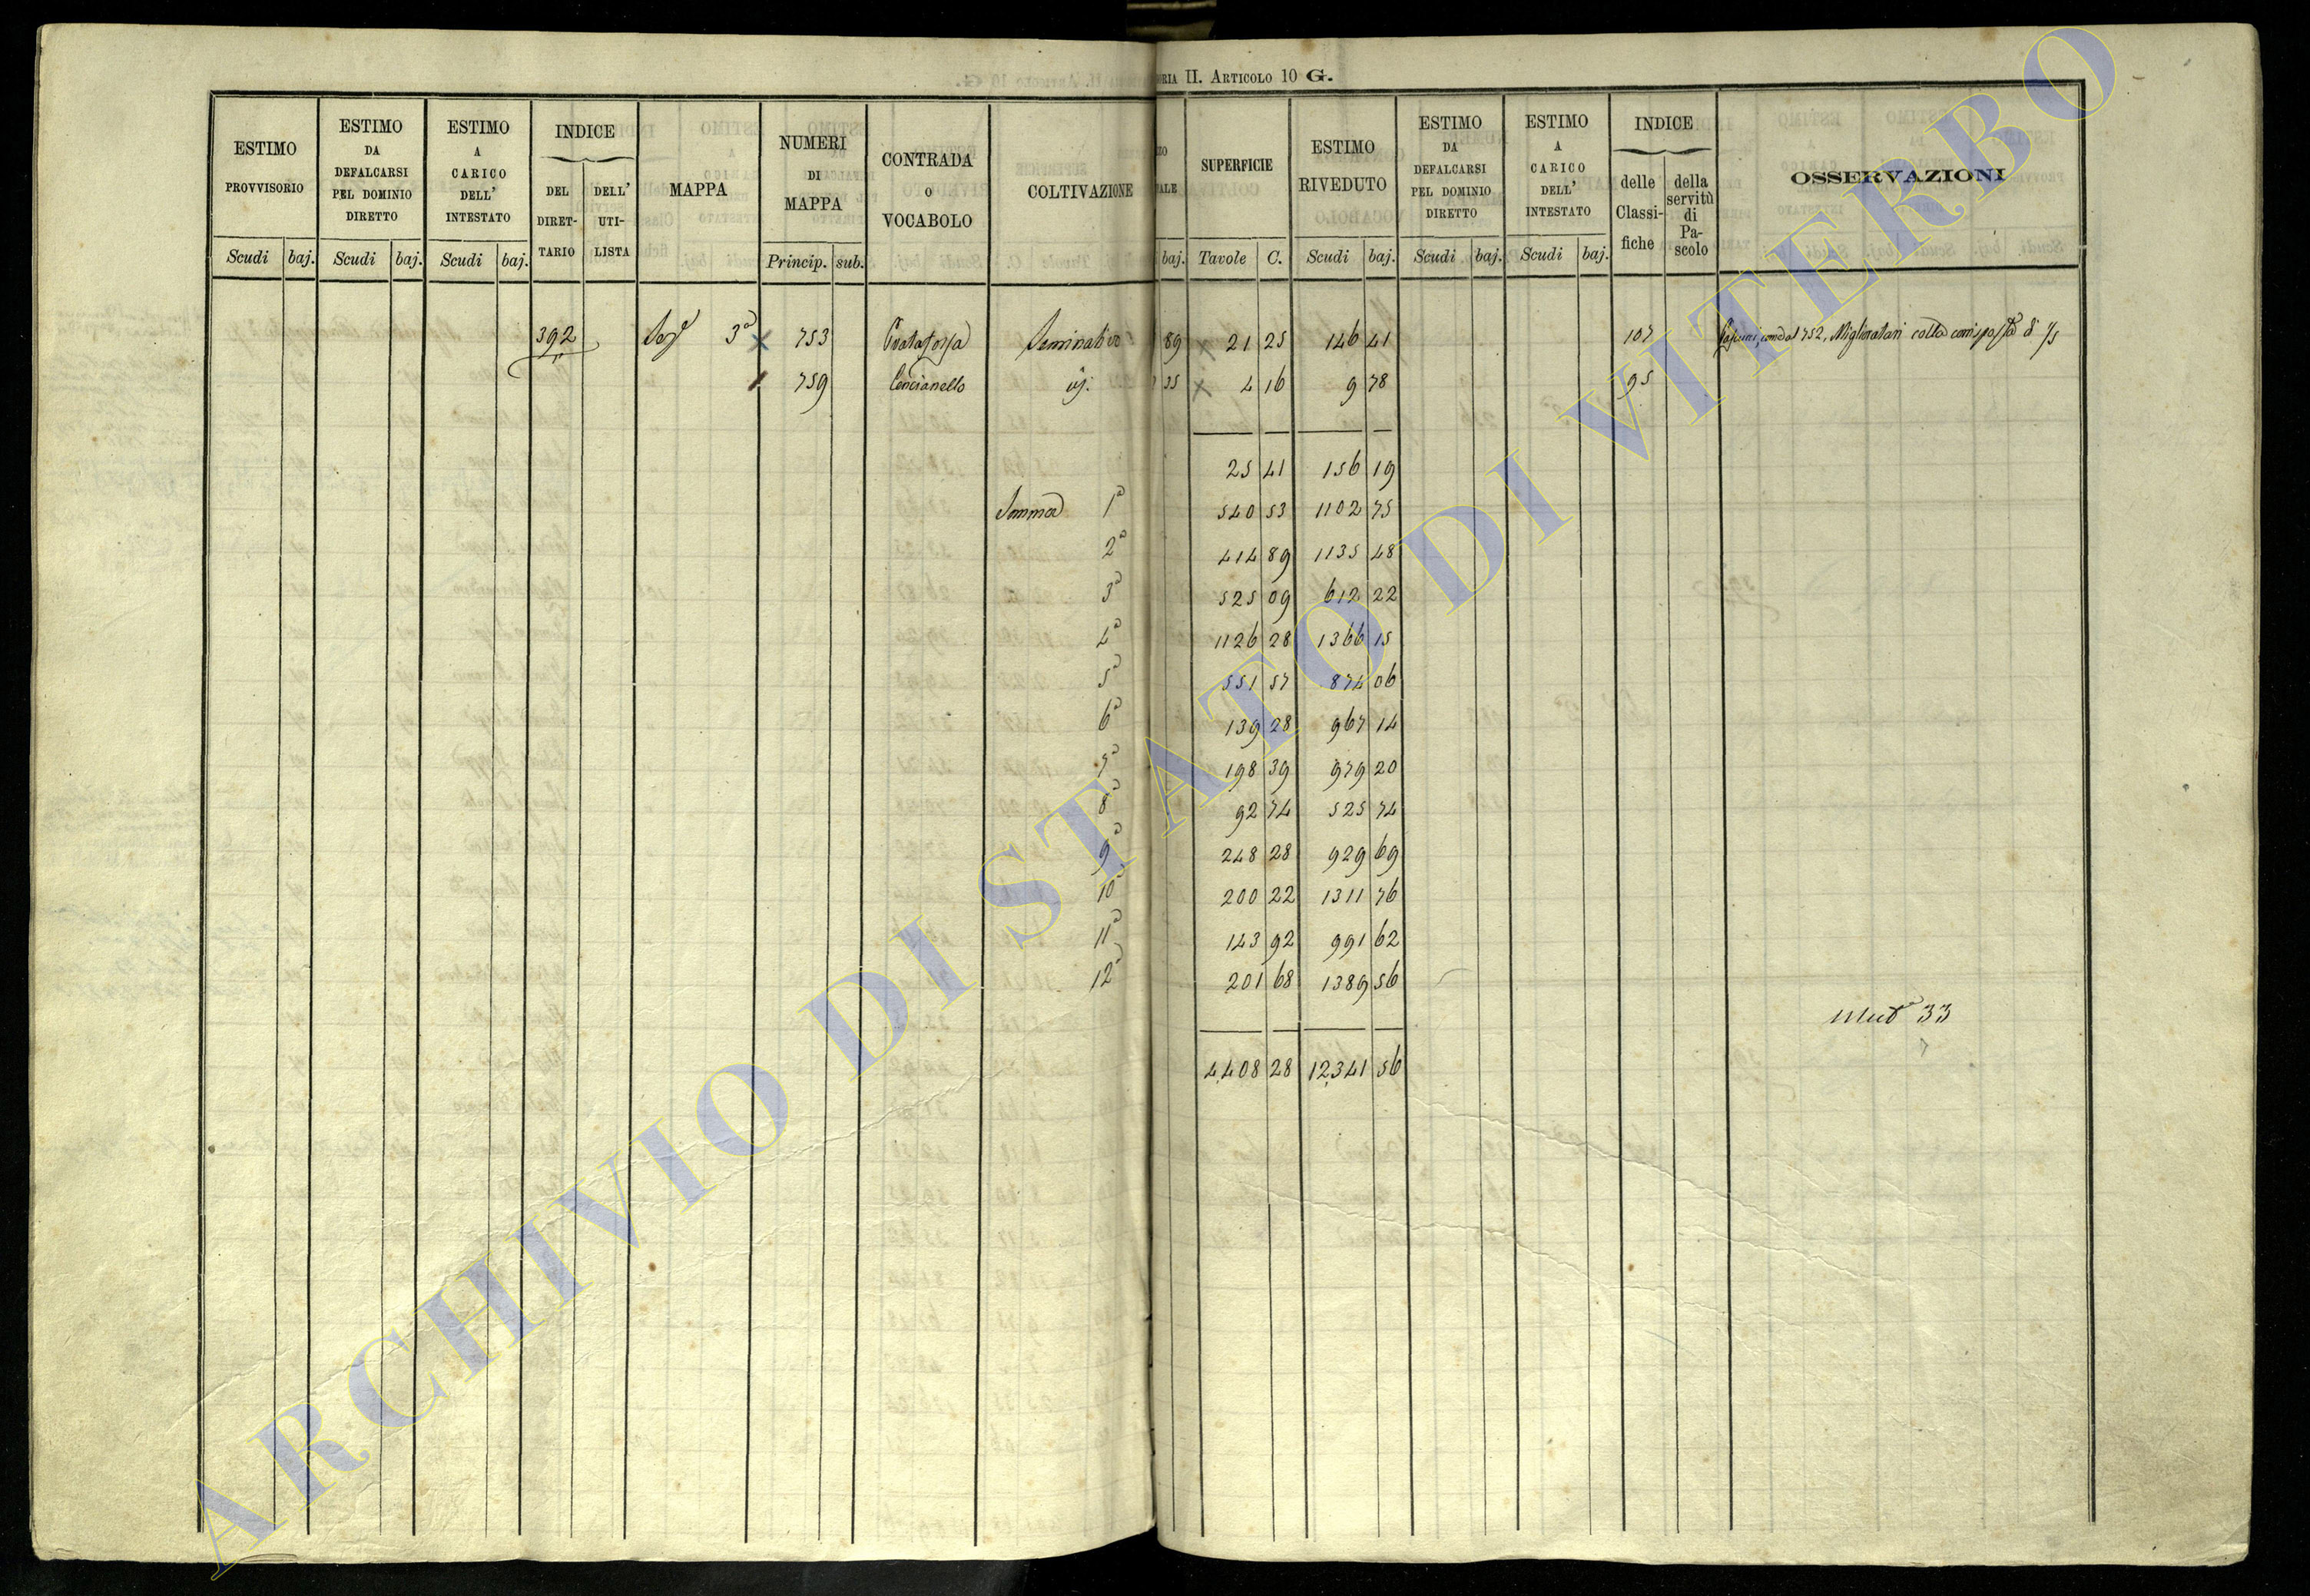 ORIA II. ARTICOLO 10 G.
ESTIMO PROVVISORIO
ESTIMO DA DEFALCARSI PEL DOMINIO DIRETTO
ESTIMO A CARICO DELL' INTESTATO
INDICE
DEL DIRET-TARIO
DELL' UTI-LISTA
MAPPA
NUMERI DI MAPPA
CONTRADA O VOCABOLO
COLTIVAZIONE
SUPERFICIE
ESTIMO RIVEDUTO
ESTIMO DA DEFALCARSI PEL DOMINIO DIRETTO
ESTIMO A CARICO DELL' INTESTATO
INDICE
delle Classi-fiche
della servitù di Pa-scolo
OSSERVAZIONI
Scudi baj. Scudi baj. Scudi baj. Princip. sub. baj. Tavole C. Scudi baj. Scudi baj. Scudi baj.
392 3a 753 Seminativo 89 21 25 146 41 107 1752, Miglioratari colla corrisposta di 1/5
759 Cencianello 35 4 16 9 78 95
25 41 156 19
Somma 1a 540 53 1102 75
2a 414 89 1135 48
3a 525 09 612 22
4a 1126 28 1366 15
5a 551 57 874 06
6a 139 28 967 14
7a 198 39 979 20
8a 92 74 525 74
9a 248 28 929 69
10a 200 22 1311 76
11a 143 92 991 62
12a 201 68 1389 56
Muta 33
4408 28 12341 56
ARCHIVIO DI STATO DI VITERBO